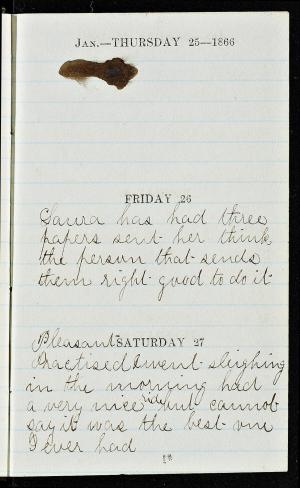 Jan.—THURSDAY 25—1866
FRIDAY 26
Laura has had three
papers sent her think
the person that sends
them right good to do it
Pleasant SATURDAY 27
Practised & went sleighing
in the morning had
a very nice ride but cannot
say it was the best one
I ever had